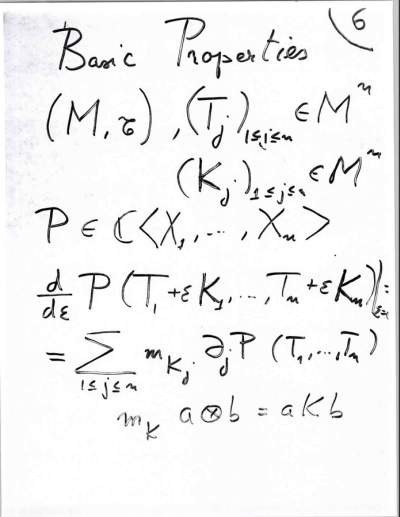 6
Basic Properties
(M, τ), (T_j)_{1≤j≤n} ∈ M^n
(K_j)_{1≤j≤n} ∈ M^n
P ∈ ℂ⟨X_1, ..., X_n⟩
d/dε P(T_1+εK_1, ..., T_n+εK_n)|_{ε=0} =
= ∑_{1≤j≤n} m_{K_j} ∂_j P (T_1, ..., T_n)
m_K a⊗b = aKb